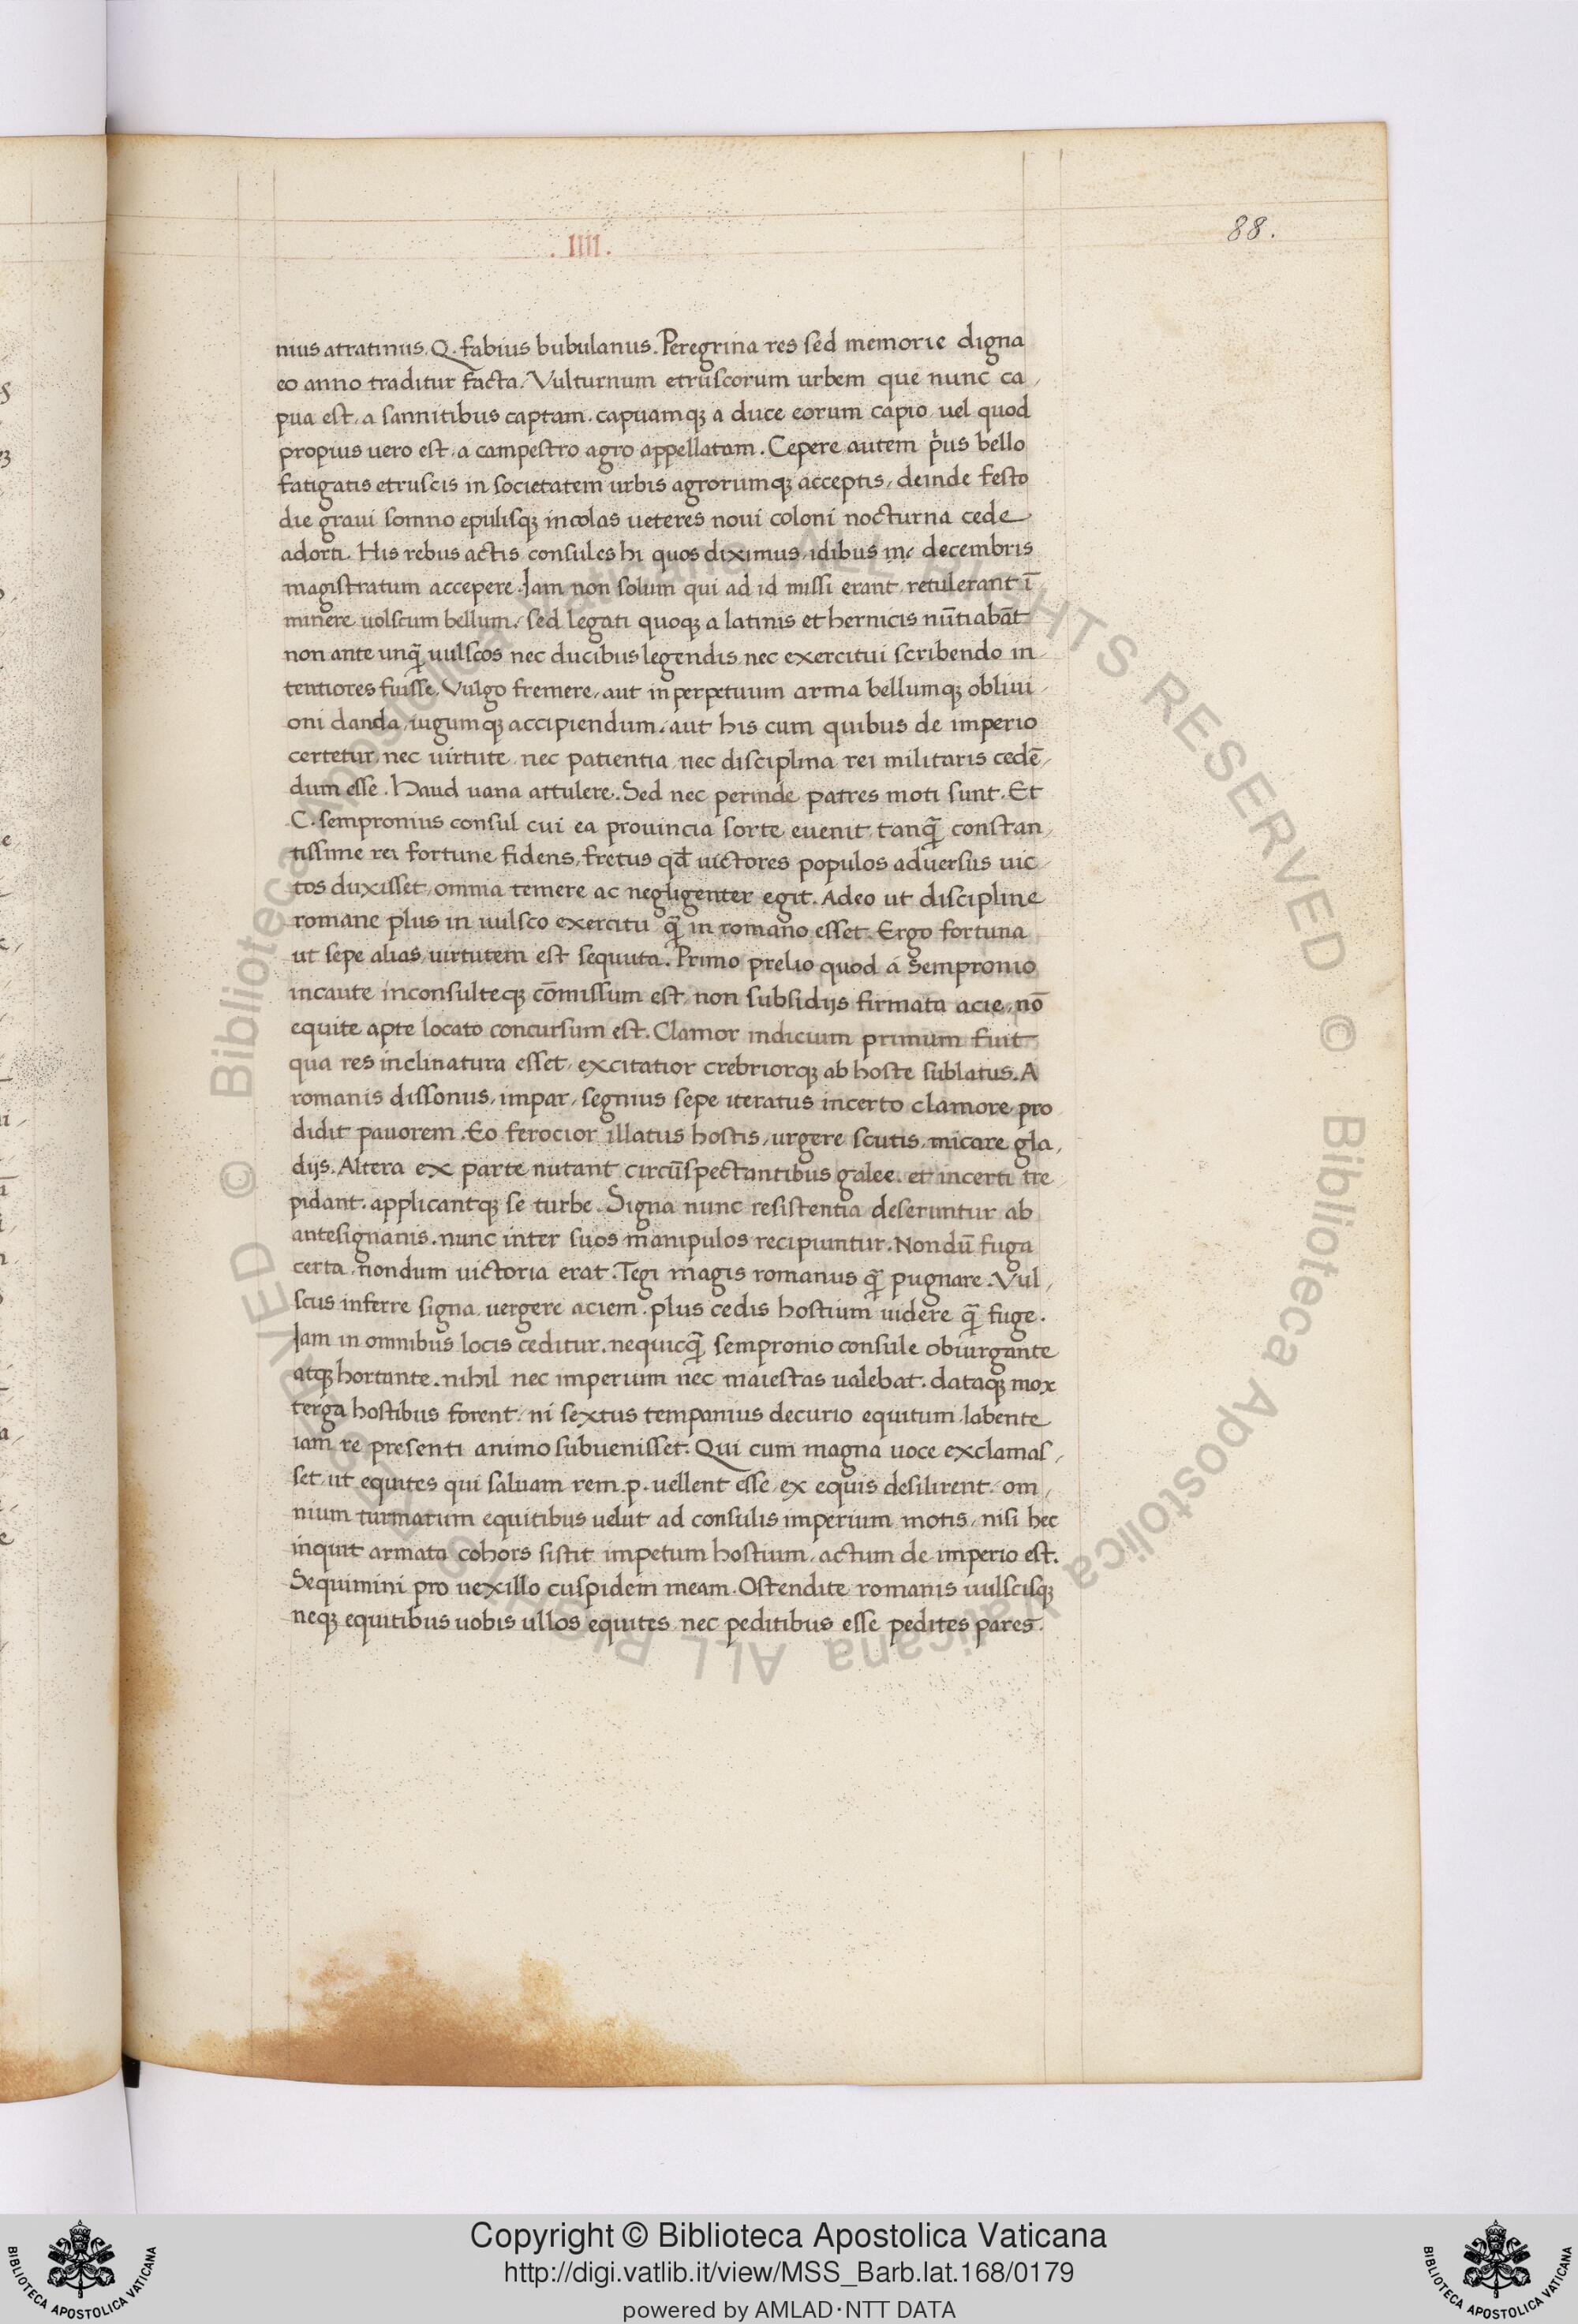 88.
.IIII.
nius atratinus. Q. fabius bubulanus. Peregrina res sed memorie digna
eo anno traditur facta. Vulturnum etruscorum urbem que nunc ca
pua est, a sannitibus captam. capuamqꝫ a duce eorum capio uel quod
propius uero est, a campestro agro appellatam. Cepere autem pͥus bello
fatigatis etruscis in societatem urbis agrorumqꝫ acceptis, deinde festo
die graui somno epulisqꝫ incolas ueteres noui coloni nocturna cede
adorti. His rebus actis consules hi quos diximus idibus decembris
magistratum accepere. Iam non solum qui ad id missi erant retulerant ī
minere uolscum bellum. sed legati quoqꝫ a latinis et hernicis nūtiabāt
non ante unq̄ uulscos nec ducibus legendis nec exercitui scribendo in
tentiores fuisse. Vulgo fremere, aut in perpetuum arma bellumqꝫ obliui
oni danda, iugumqꝫ accipiendum. aut his cum quibus de imperio
certetur, nec uirtute nec patientia nec disciplina rei militaris cedē
dum esse. Haud uana attulere. Sed nec perinde patres moti sunt. Et
C. sempronius consul cui ea prouincia sorte euenit, tanq̄ constan
tissime rei fortune fidens, fretus qđ uictores populos aduersus uic
tos duxisset, omnia temere ac negligenter egit. Adeo ut discipline
romane plus in uulsco exercitu q̄ in romano esset. Ergo fortuna
ut sepe alias uirtutem est sequuta. Primo prelio quod a sempronio
incaute inconsulteqꝫ cōmissum est, non subsidijs firmata acie, nō
equite apte locato concursum est. Clamor indicium primum fuit
qua res inclinatura esset, excitatior crebriorqꝫ ab hoste sublatus. A
romanis dissonus, impar, segnius sepe iteratus incerto clamore pro
didit pauorem. Eo ferocior illatus hostis, urgere scutis, micare gla
dijs. Altera ex parte nutant circūspectantibus galee. et incerti tre
pidant. applicantqꝫ se turbe. Signa nunc resistentia deseruntur ab
antesignanis. nunc inter suos manipulos recipiuntur. Nondū fuga
certa, nondum uictoria erat. Tegi magis romanus q̄ pugnare. Vul
scus inferre signa, uergere aciem. plus cedis hostium uidere q̄ fuge.
Iam in omnibus locis ceditur. nequicq̄ sempronio consule obiurgante
atqꝫ hortante. nihil nec imperium nec maiestas ualebat. dataqꝫ mox
terga hostibus forent, ni sextus tempanius decurio equitum labente
iam re presenti animo subuenisset. Qui cum magna uoce exclamas
set, ut equites qui saluam rem .p. uellent esse, ex equis desilirent. om
nium turmarum equitibus uelut ad consulis imperium motis, nisi hec
inquit armata cohors sistit impetum hostium, actum de imperio est.
Sequimini pro uexillo cuspidem meam. Ostendite romanis uulscisqꝫ
neqꝫ equitibus uobis ullos equites nec peditibus esse pedites pares.
© Biblioteca Apostolica Vaticana ALL RIGHTS RESERVED
© Biblioteca Apostolica Vaticana ALL RIGHTS RESERVED
BIBLIOTECA APOSTOLICA VATICANA
Copyright © Biblioteca Apostolica Vaticana
http://digi.vatlib.it/view/MSS_Barb.lat.168/0179
powered by AMLAD·NTT DATA
BIBLIOTECA APOSTOLICA VATICANA